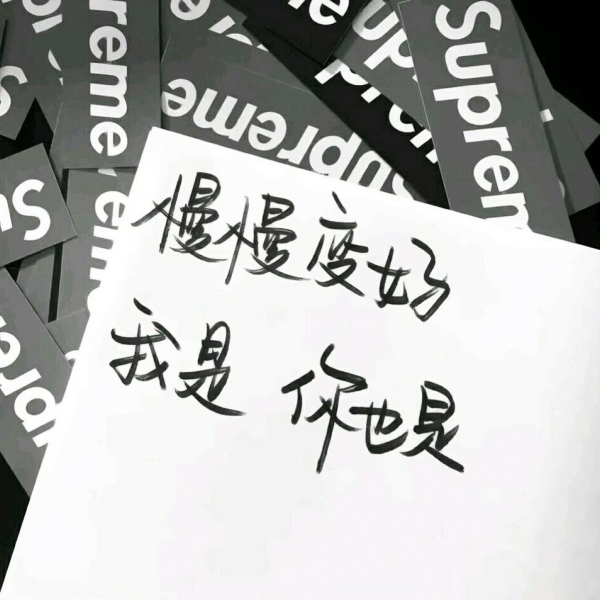 Supreme
preme
Supreme
Supreme
Supren
Su
preme
慢慢变好
我是 你也是